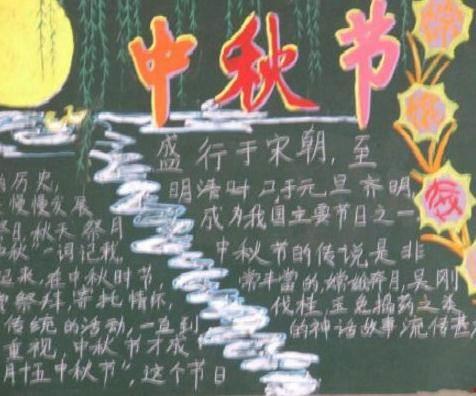 中秋节
的历史,
慢慢发展
祭月,秋天祭月
中秋一词记
起来,在中秋时节,
祭拜,寄托情怀
传统的活动,一直到
重视,中秋节才成
月十五中秋节",这个节日
盛行于宋朝,至
明清时,与元旦齐明
成为我国主要节日之一
中秋节的传说是非
常丰富的,嫦娥奔月,吴刚
伐桂,玉兔捣药之类
的神话故事流传甚